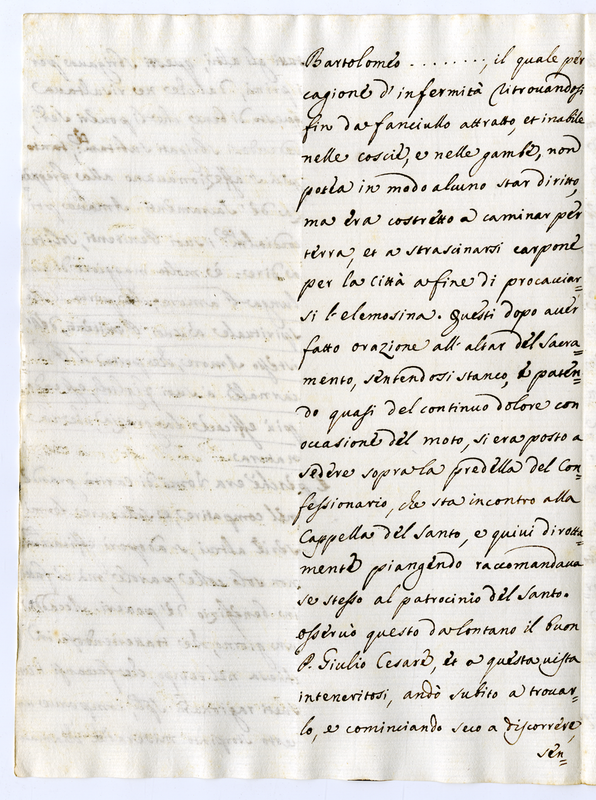 Bartolomeo ........, il quale per
cagione d'infermità ritrovandosi
fin da fanciullo attratto, et inabile
nelle coscie, e nelle gambe, non
potea in modo alcuno star diritto,
ma era costretto a caminar per
terra, et a strascinarsi carpone
per la Città a fine di procacciar=
si l'elemosina. Questi dopo aver
fatto orazione all'altar del Sacra=
mento, sentendosi stanco, e paten=
do quasi del continuo dolore con
occasione del moto, si era posto a
sedere sopra la predella del Con=
fessionario, che sta incontro alla
Cappella del Santo, e quivi dirotta=
mente piangendo raccomandava
se stesso al patrocinio del Santo.
Osservò questo da lontano il buon
P. Giulio Cesare, et a questa vista
inteneritosi, andò subito a trovar=
lo, e cominciando seco a discorrere,
sen=